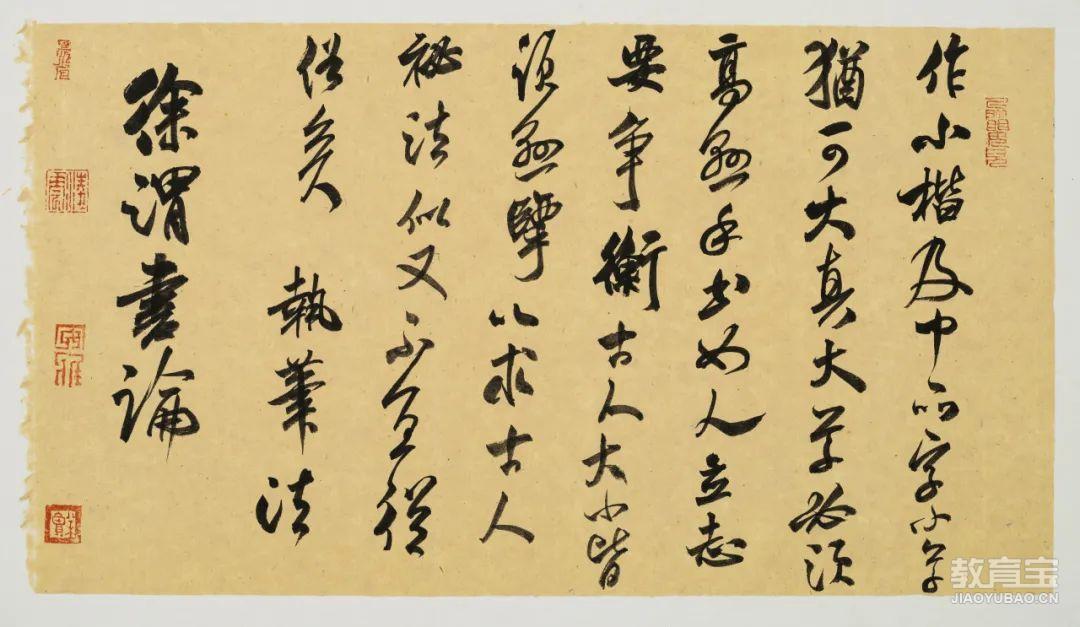 作小楷及中品字小草
猶可大真大草必須
高懸手書如人立志
要争衡古人大小皆
須懸掔以求古人
祕法似又不宜從
俗矣 執筆法
徐渭書論
教育宝
JIAOYUBAO.CN